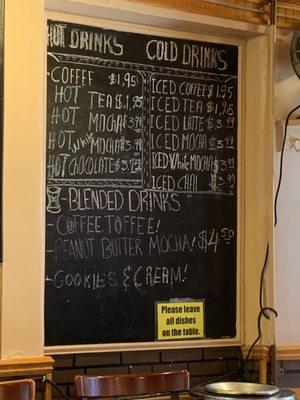 HOT DRINKS
COFFEE $1.95
HOT TEA $1.95
HOT MOCHA $3.99
HOT White MOCHA $3.99
HOT CHOCOLATE $3.75
COLD DRINKS
ICED COFFEE $1.95
ICED TEA $1.95
ICED LATTE $3.99
ICED MOCHA $3.99
ICED White MOCHA $3.99
ICED CHAI $3.99
-BLENDED DRINKS-
-COFFEE TOFFEE!
-PEANUT BUTTER MOCHA! $4.50
-COOKIES & CREAM!
Please leave
all dishes
on the table.